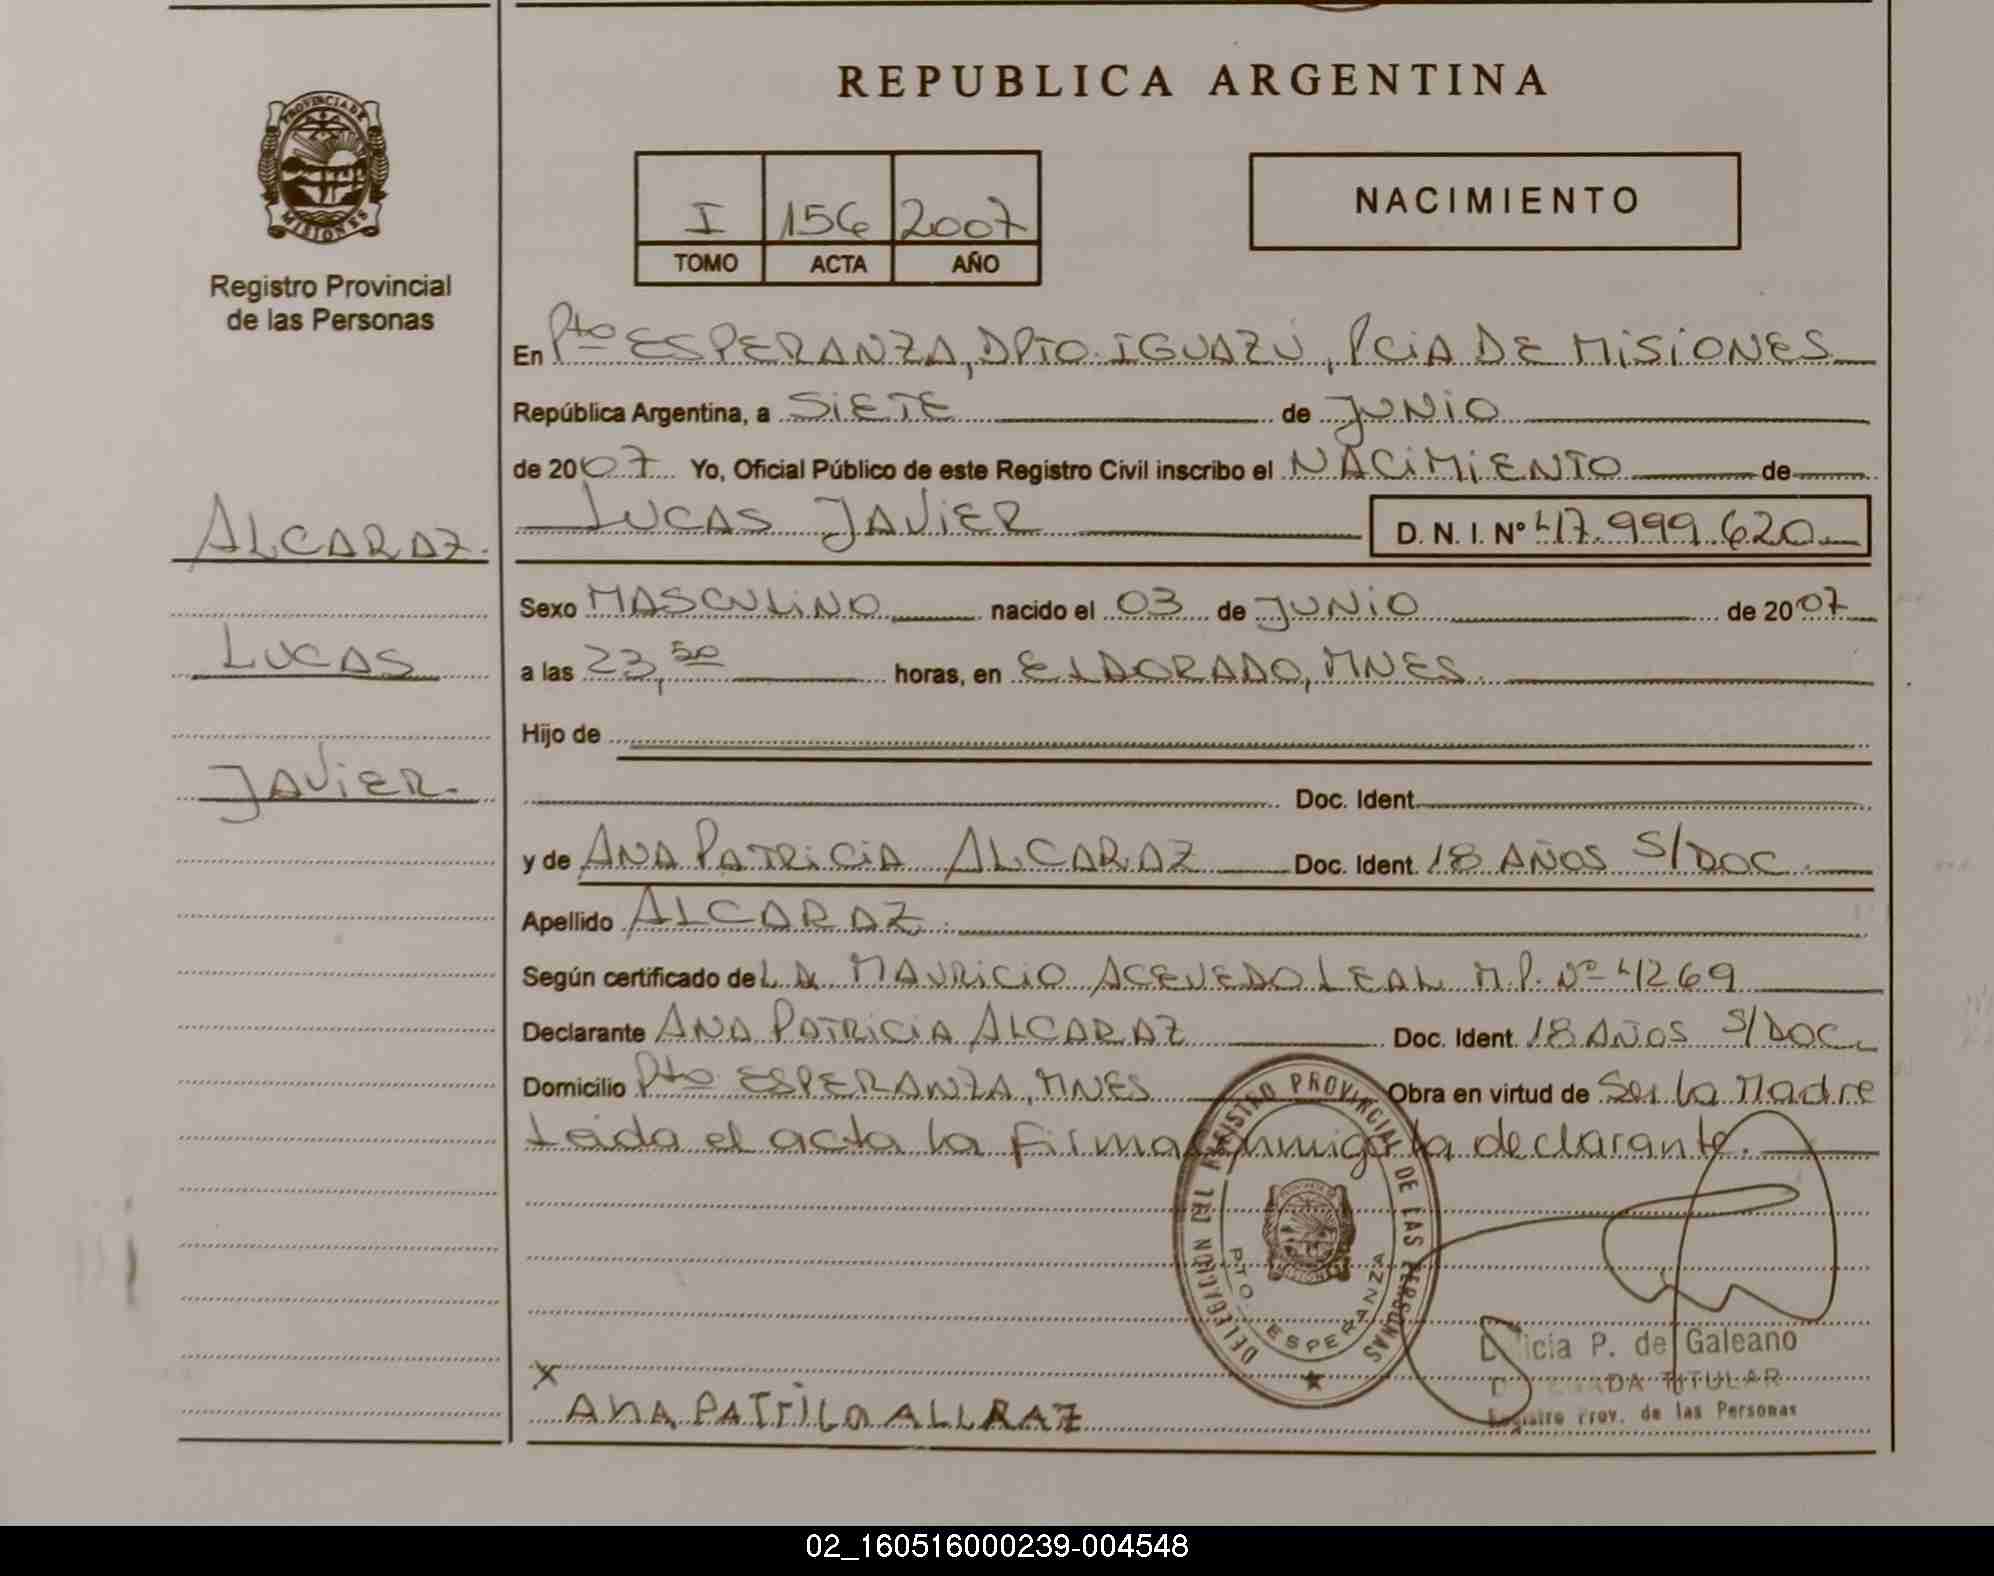 REPUBLICA ARGENTINA
PROVINCIA DE
MISIONES
Registro Provincial
de las Personas
I 156 2007
TOMO ACTA AÑO
NACIMIENTO
En Pto ESPERANZA, DPTO. IGUAZÚ, PCIA DE MISIONES
República Argentina, a SIETE de JUNIO
de 2007 Yo, Oficial Público de este Registro Civil inscribo el NACIMIENTO de
LUCAS JAVIER D. N. I. Nº 47.999.620
ALCARAZ.
LUCAS
JAVIER.
Sexo MASCULINO nacido el 03 de JUNIO de 2007
a las 23,50 horas, en ELDORADO, MNES.
Hijo de
Doc. Ident.
y de ANA PATRICIA ALCARAZ Doc. Ident. 18 AÑOS S/DOC.
Apellido ALCARAZ.
Según certificado de MAURICIO ACEVEDO LEAL M.P. Nº 4269
Declarante ANA PATRICIA ALCARAZ Doc. Ident. 18 AÑOS S/DOC
Domicilio Pto ESPERANZA, MNES Obra en virtud de Ser la Madre
Leida el acta la firma conmigo la declarante.
DELEGACION DEL REGISTRO PROVINCIAL DE LAS PERSONAS
PTO. ESPERANZA
P. de Galeano
TITULAR
Registro Prov. de las Personas
X
ANA PATRICIA ALLRAZ
02_160516000239-004548